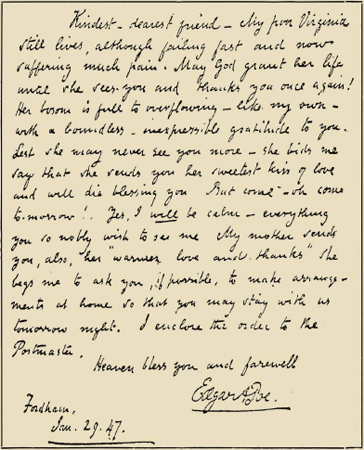 Kindest - dearest friend - My poor Virginia
still lives, although failing fast and now
suffering much pain. May God grant her life
until she sees you and thanks you once again!
Her bosom is full to overflowing - like my own -
with a boundless - inexpressible gratitude to you.
Lest she may never see you more - she bids me
say that she sends you her sweetest kiss of love
and will die blessing you But come - oh come
to-morrow! Yes, I will be calm - everything
you so nobly wish to see me My mother sends
you, also, her "warmest love and thanks" She
begs me to ask you, if possible, to make arrange-
ments at home so that you may stay with us
tomorrow night. I enclose the order to the
Postmaster.
Heaven bless you and farewell
Edgar A Poe.
Fordham,
Jan. 29. 47.